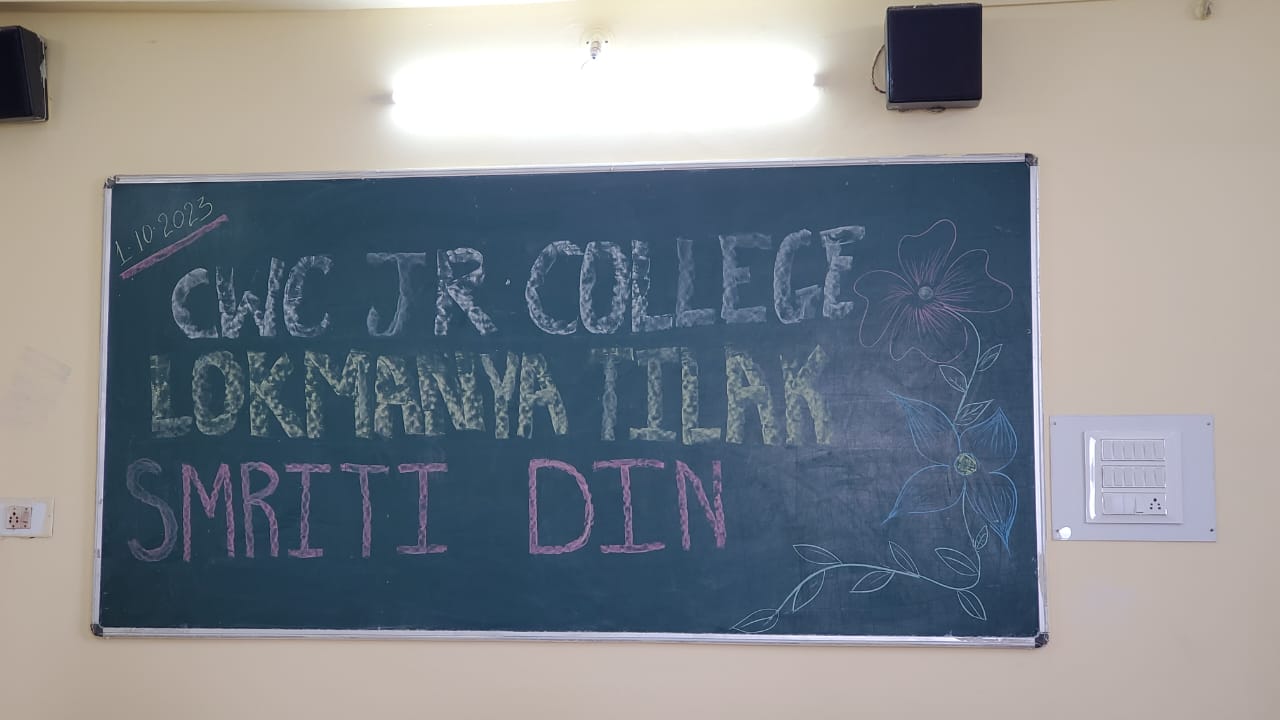 1.10.2023
CWC JR. COLLEGE
LOKMANYA TILAK
SMRITI DIN